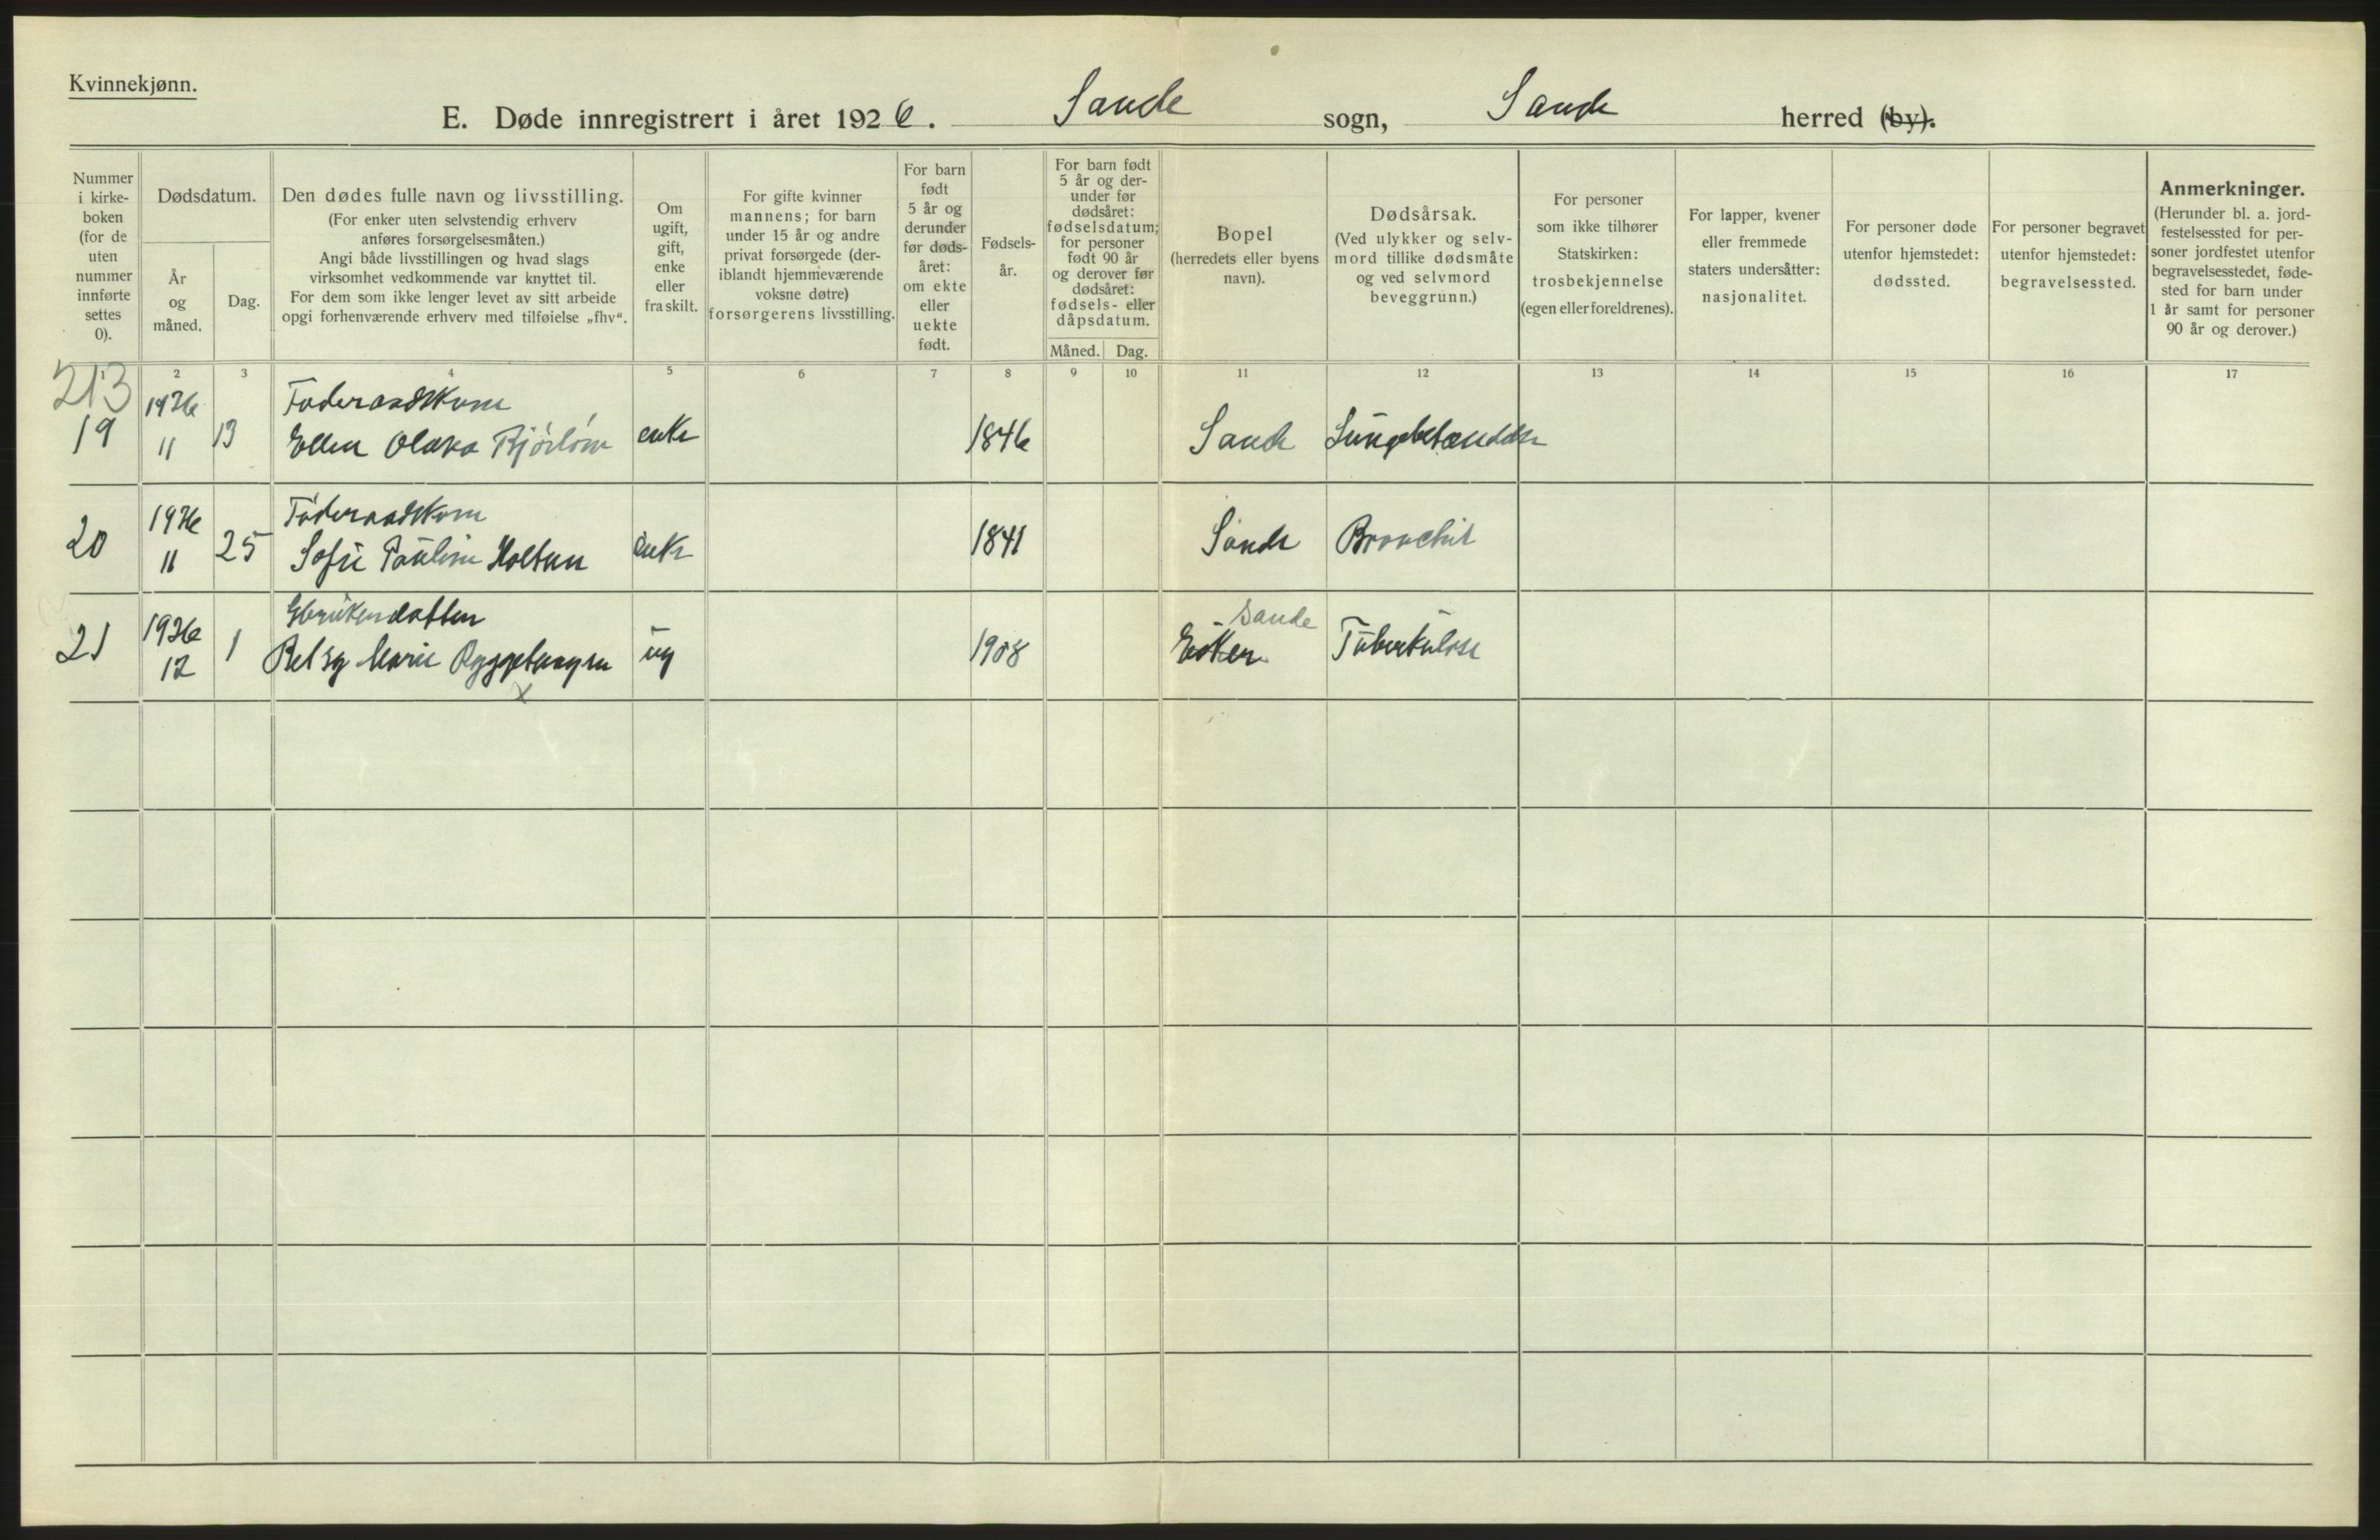 Kvinnekjønn.
E. Døde innregistrert i året 1926. Sande sogn, Sande herred (by).
Nummer i kirke-boken (for de uten nummer innførte settes 0).
Dødsdatum.
År og måned.
Dag.
Den dødes fulle navn og livsstilling.
(For enker uten selvstendig erhverv
anføres forsørgelsesmåten.)
Angi både livsstillingen og hvad slags
virksomhet vedkommende var knyttet til.
For dem som ikke lenger levet av sitt arbeide
opgi forhenværende erhverv med tilføielse „fhv“.
Om ugift, gift, enke eller fraskilt.
For gifte kvinner
mannens; for barn
under 15 år og andre
privat forsørgede (der-
iblandt hjemmeværende
voksne døtre)
forsørgerens livsstilling.
For barn født 5 år og derunder før døds-året: om ekte eller uekte født.
Fødsels-år.
For barn født
5 år og der-
under før
dødsåret:
fødselsdatum;
for personer
født 90 år
og derover før
dødsåret:
fødsels- eller
dåpsdatum.
Måned. Dag.
Bopel
(herredets eller byens
navn).
Dødsårsak.
(Ved ulykker og selv-
mord tillike dødsmåte
og ved selvmord
beveggrunn.)
For personer
som ikke tilhører
Statskirken:
trosbekjennelse
(egen eller foreldrenes).
For lapper, kvener
eller fremmede
staters undersåtter:
nasjonalitet.
For personer døde
utenfor hjemstedet:
dødssted.
For personer begravet
utenfor hjemstedet:
begravelsessted.
Anmerkninger.
(Herunder bl. a. jord-
festelsessted for per-
soner jordfestet utenfor
begravelsesstedet, føde-
sted for barn under
1 år samt for personer
90 år og derover.)
1 2 3 4 5 6 7 8 9 10 11 12 13 14 15 16 17
213
1926 Føderaadskone
19 11 13 Ellen Olava enke 1846 Sande Lungebetændelse
1926 Føderaadskone
20 11 25 Sofie Pauline Holtan enke 1841 Sande Bronchit
1926 Gbrukerdatter Sande
21 12 1 Betsy Marie ug 1908 Eiker Tuberkulose
x